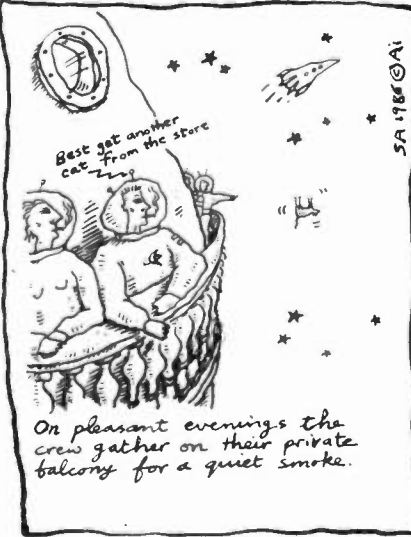 Best get another
cat from the store
SA 1986 © Ai
On pleasant evenings the
crew gather on their private
balcony for a quiet smoke.